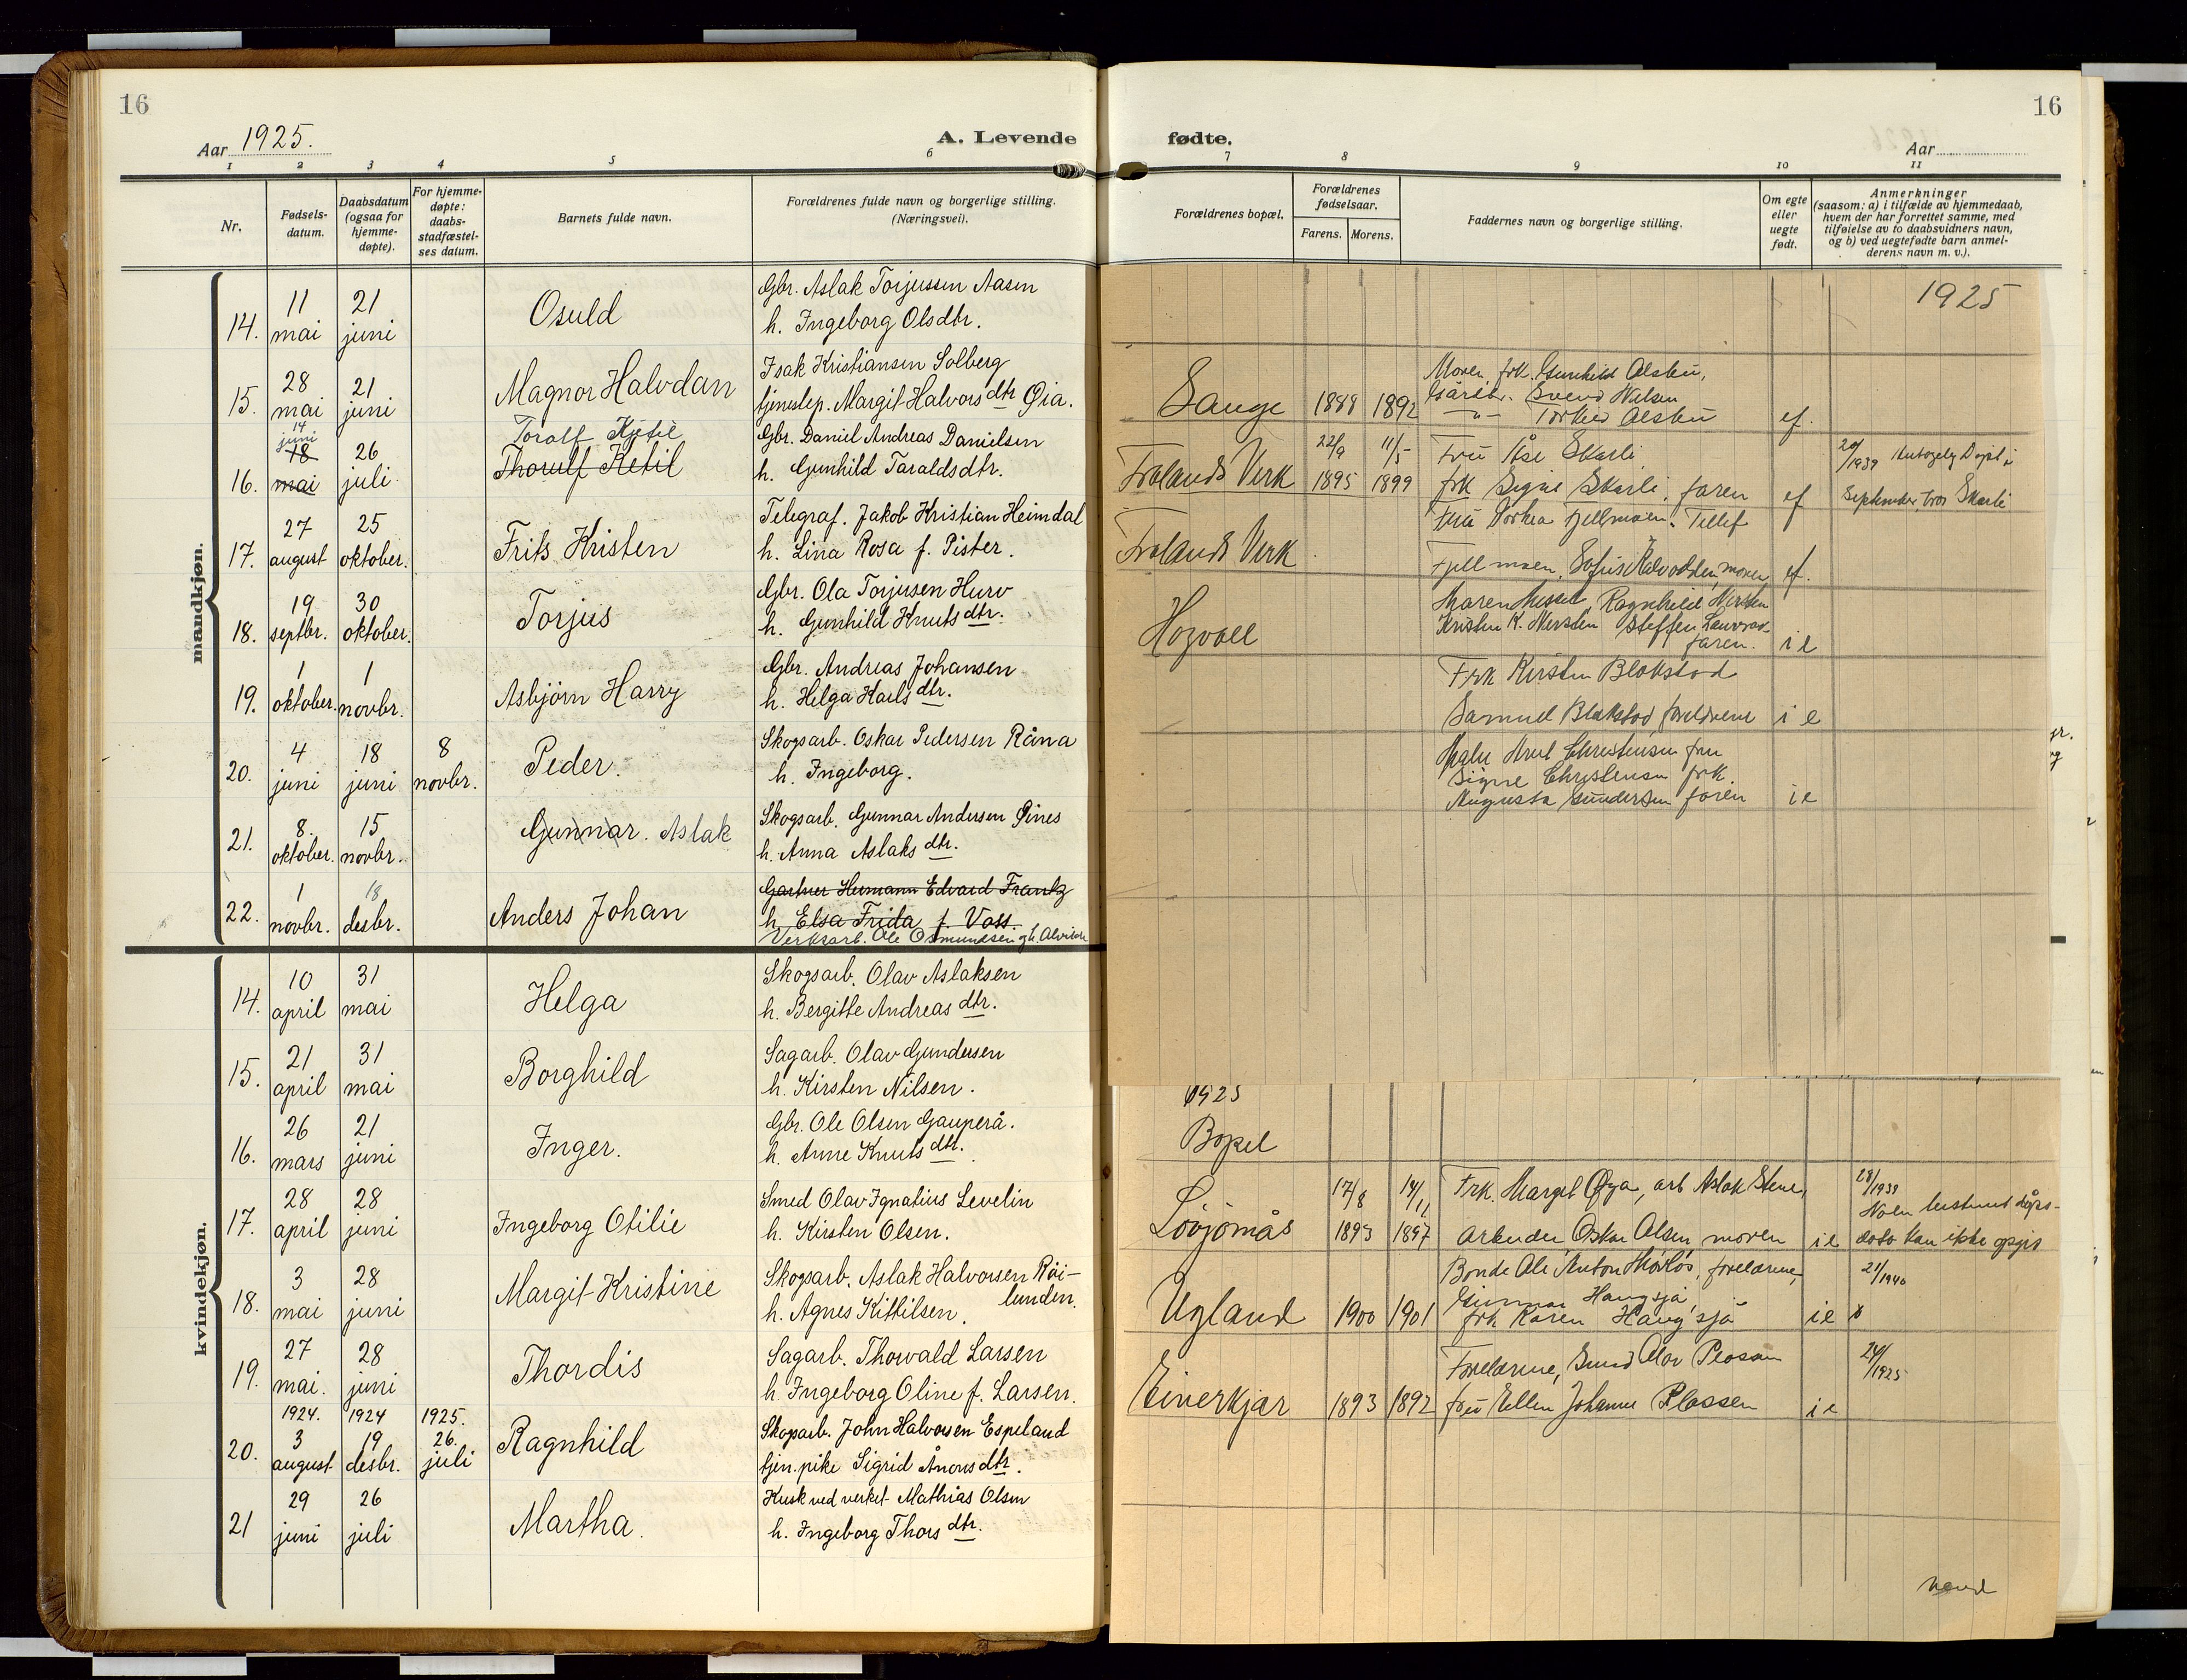 16
Aar 1925.
A. Levende
1 2 3 4 5 6
Nr.
Fødsels-
datum.
Daabsdatum
(ogsaa for
hjemme-
døpte).
For hjemme-
døpte:
daabs-
stadfæstel-
ses datum.
Barnets fulde navn.
Forældrenes fulde navn og borgerlige stilling.
(Næringsvei).
mandkjøn.
14. 11 mai 21 juni Osuld
Gbr. Aslak Torjussen Aasen
h. Ingeborg Olsdtr.
15. 28 mai 21 juni Magnor Halvdan
Isak Kristiansen Solberg
tjenestep. Margit Halvorsdtr Øia.
14
juni
Toralf Kjetil
16. 18 mai 26 juli Thorulf Ketil
Gbr. Daniel Andreas Danielsen
h. Gunhild Taraldsdtr.
17. 27 august 25 oktober. Frits Kristen
Telegraf. Jakob Kristian Heimdal
h. Lina Rosa f. Pister.
18. 19 septbr. 30 oktober. Torjus
Gbr. Ola Torjusen Hurv
h. Gunhild Knutsdtr.
19. 1 oktober. 1 novbr. Asbjørn Harry
Gbr. Andreas Johansen
h. Helga Karlsdtr.
20. 4 juni 18 juni 8 novbr. Peder.
Skogsarb. Oskar Pedersen Råna
h. Ingeborg.
21. 8. oktober. 15 novbr. Gunnar. Aslak
Skogsarb. Gunnar Andersen Øines
h. Anna Aslaksdtr.
22. 1 novbr. 18 desbr. Anders Johan
Gartner Hermann Edvard Frantz
h. Elsa Frida f. Voss.
Verksarb. Ole Osmundsen og h. Alvilde
kvindekjøn.
14. 10 april 31 mai Helga
Skogsarb. Olav Aslaksen
h. Bergitte Andreasdtr.
15. 21 april 31 mai Borghild
Sagarb. Olav Gundersen
h. Kirsten Nilsen.
16. 26 mars 21 juni Inger.
Gbr. Ole Olsen Gauperå.
h. Anne Knutsdtr.
17. 28 april 28 juni Ingeborg Otilie
Smed Olav Ignatius Levelin
h. Kirsten Olsen.
18. 3 mai 28 juni Margit Kristine
Skogsarb. Aslak Halvorsen Röi-
lunden.
h. Agnes Kittilsen.
19. 27 mai. 28 juni Thordis
Sagarb. Thorvald Larsen
h. Ingeborg Oline f. Larsen.
1924. 1924 1925.
20. 3 august 19 desbr. 26. juli Ragnhild
Skogsarb. John Halvorsen Espeland
tjen.pike Sigrid Ånonsdtr.
21 29 juni 26 juli Martha.
Kusk ved verket Mathias Olsen
h. Ingeborg Thorsdtr.
16
fødte.
Aar
7 8 9 10 11
Forældrenes bopæl.
Forældrenes
fødselsaar.
Farens. Morens.
Faddernes navn og borgerlige stilling.
Om egte
eller
uegte
født.
Anmerkninger
(saasom: a) i tilfælde av hjemmedaab,
hvem der har forrettet samme, med
tilføielse av to daabsvidners navn,
og b) ved uegtefødte barn anmel-
derens navn m. v.).
1925
Moren, frk. Gunhild Olsbu,
Gårdbr. Svend Nilsen
Sauge 1888 1892 -"- Torkel Olsbu ef.
22/9 11/5 Fru Åse Skarli 20/1939
Frolands Verk 1895 1899 frk Signe Skarli, faren ef September Skarli
Fru Dorthea Fjellmoen. Tellef
Frolands Verk
Fjellmoen, moren ef.
Ragnhild Mersten
Hogvoll Kristen K. Mersten Steffen
faren. i e
Frk Kirsten Blakstad
Samuel Blakstad foreldrene i e
Signe Christensen frk.
Augusta Gundersen faren i e
1925
Bopel
17/8 14/11 Frk. Margit Øya, arb Aslak Stene, 28/1939
Lövjömås 1893 1897 arbeider Oskar Olsen moren i e dato kan ikke opgis
Bonde Ole Anton, foreldrene, 21/1940
Gunnar Haugsjå,
Ugland 1900 1901 frk Karen Haugsjå i e
Foreldrene, Smed Olav Plassen 24/1925
Einerkjær 1893 1892 fru Ellen Johanne Plassen i e
vend